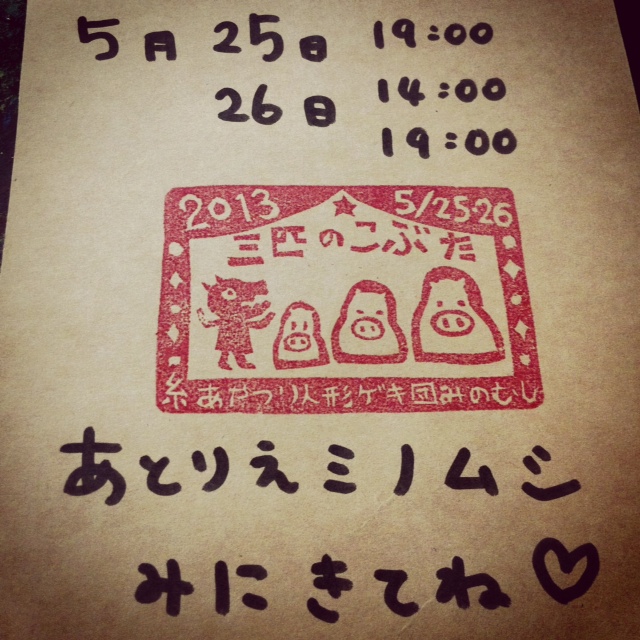 5月 25日 19:00
26日 14:00
19:00
2013 ★ 5/25・26
三匹のこぶた
糸あやつり人形ゲキ団みのむし
あとりえミノムシ
みにきてね♡